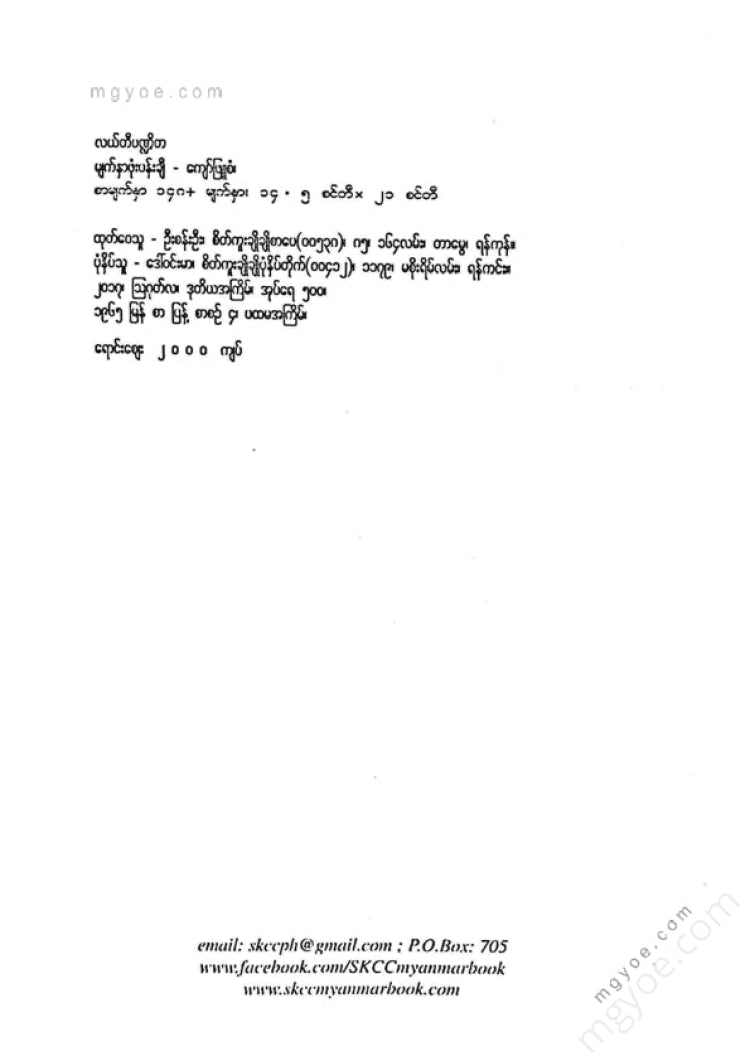 mgyoe.com
လယ်တီပဏ္ဍိတ
မျက်နှာဖုံးပန်းချီ - ကျော်ဖြူစံ၊
စာမျက်နှာ ၁၄၈+ မျက်နှာ၊ ၁၄ . ၅ စင်တီ× ၂၁ စင်တီ
ထုတ်ဝေသူ - ဦးစန်းဦး၊ စိတ်ကူးချိုချိုစာပေ(၀၀၅၃၈)၊ ၈၅၊ ၁၆၄လမ်း၊ တာမွေ၊ ရန်ကုန်။
ပုံနှိပ်သူ - ဒေါ်ဝင်းမာ၊ စိတ်ကူးချိုချိုပုံနှိပ်တိုက်(၀၀၄၁၂)၊ ၁၁၇၉၊ မစိုးရိမ်လမ်း၊ ရန်ကင်း။
၂၀၁၇၊ သြဂုတ်လ၊ ဒုတိယအကြိမ်၊ အုပ်ရေ ၅၀၀၊
၁၉၆၅ မြန် စာ ပြန့် စာစဉ် ၄၊ ပထမအကြိမ်၊
ရောင်းဈေး ၂၀၀၀ ကျပ်
email: skccph@gmail.com ; P.O.Box: 705
www.facebook.com/SKCCmyanmarbook
www.skccmyanmarbook.com
mgyoe.com
mgyoe.com